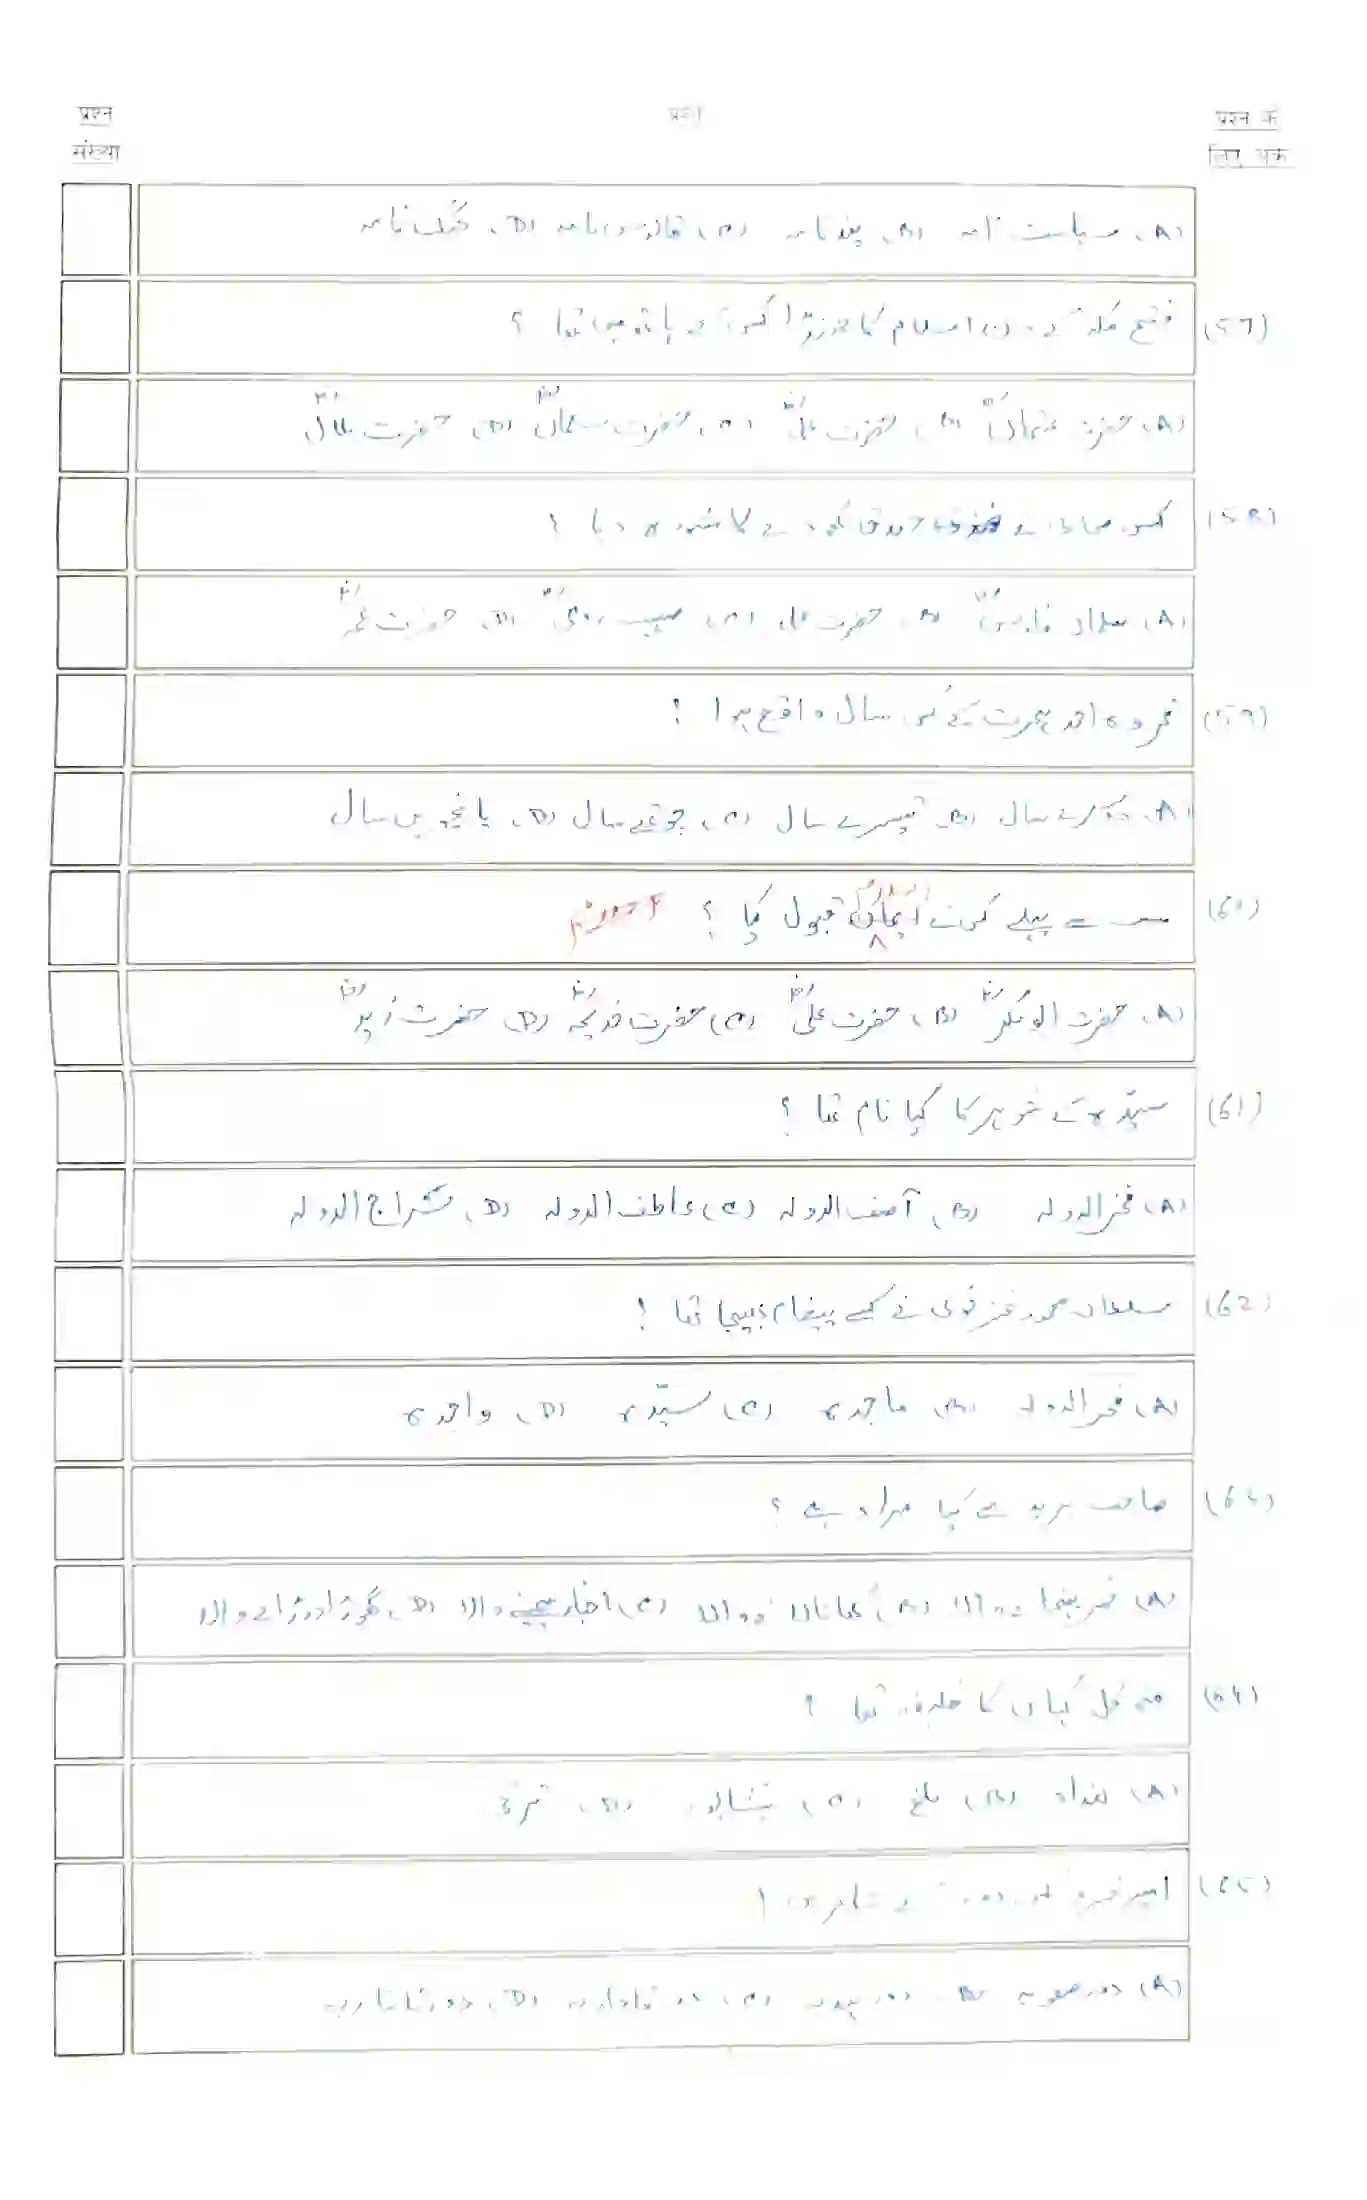 प्रश्न
संख्या
प्रश्न
प्रश्न के
लिए अंक
(A) سیاست نامہ (B) پندنامہ (C) قابوس نامہ (D) جنگ نامہ
(57) فتح مکہ کے دن اسلام کا جھنڈا کس کے ہاتھ میں تھا ؟
(A) حضرت عثمانؓ (B) حضرت علیؓ (C) حضرت سلمانؓ (D) حضرت بلالؓ
(58) کس صحابی نے خندق کھودنے کا مشورہ دیا ؟
(A) سلمان فارسیؓ (B) حضرت علی (C) صہیب رومیؓ (D) حضرت عمرؓ
(59) غزوہ احد ہجرت کے کس سال واقع ہوا ؟
(A) دوسرے سال (B) تیسرے سال (C) چوتھے سال (D) پانچویں سال
(60) سب سے پہلے کس نے ایمان قبول کیا ؟
(A) حضرت ابوبکرؓ (B) حضرت علیؓ (C) حضرت خدیجہؓ (D) حضرت زیدؓ
(61) سیّدہ کے شوہر کا کیا نام تھا ؟
(A) فخرالدولہ (B) آصف الدولہ (C) عاطف الدولہ (D) سراج الدولہ
(62) سلطان محمود غزنوی نے کسے پیغام بھیجا تھا ؟
(A) فخرالدولہ (B) ماجدہ (C) سیّدہ (D) واجدہ
(63) صاحب برید سے کیا مراد ہے ؟
(A) خبر پہنچانے والا (B) والا (C) اخبار بھیجنے والا (D) گھوڑا دوڑانے والا
(64) متوکل کہاں کا خلیفہ تھا ؟
(A) بغداد (B) بلخ (C) نیشاپور (D)
(65) امیر خسرو کس دور کے شاعر ہیں ؟
(A) دور صفویہ (B) دور (C) دور قاچاریہ (D) دور تاتاریہ